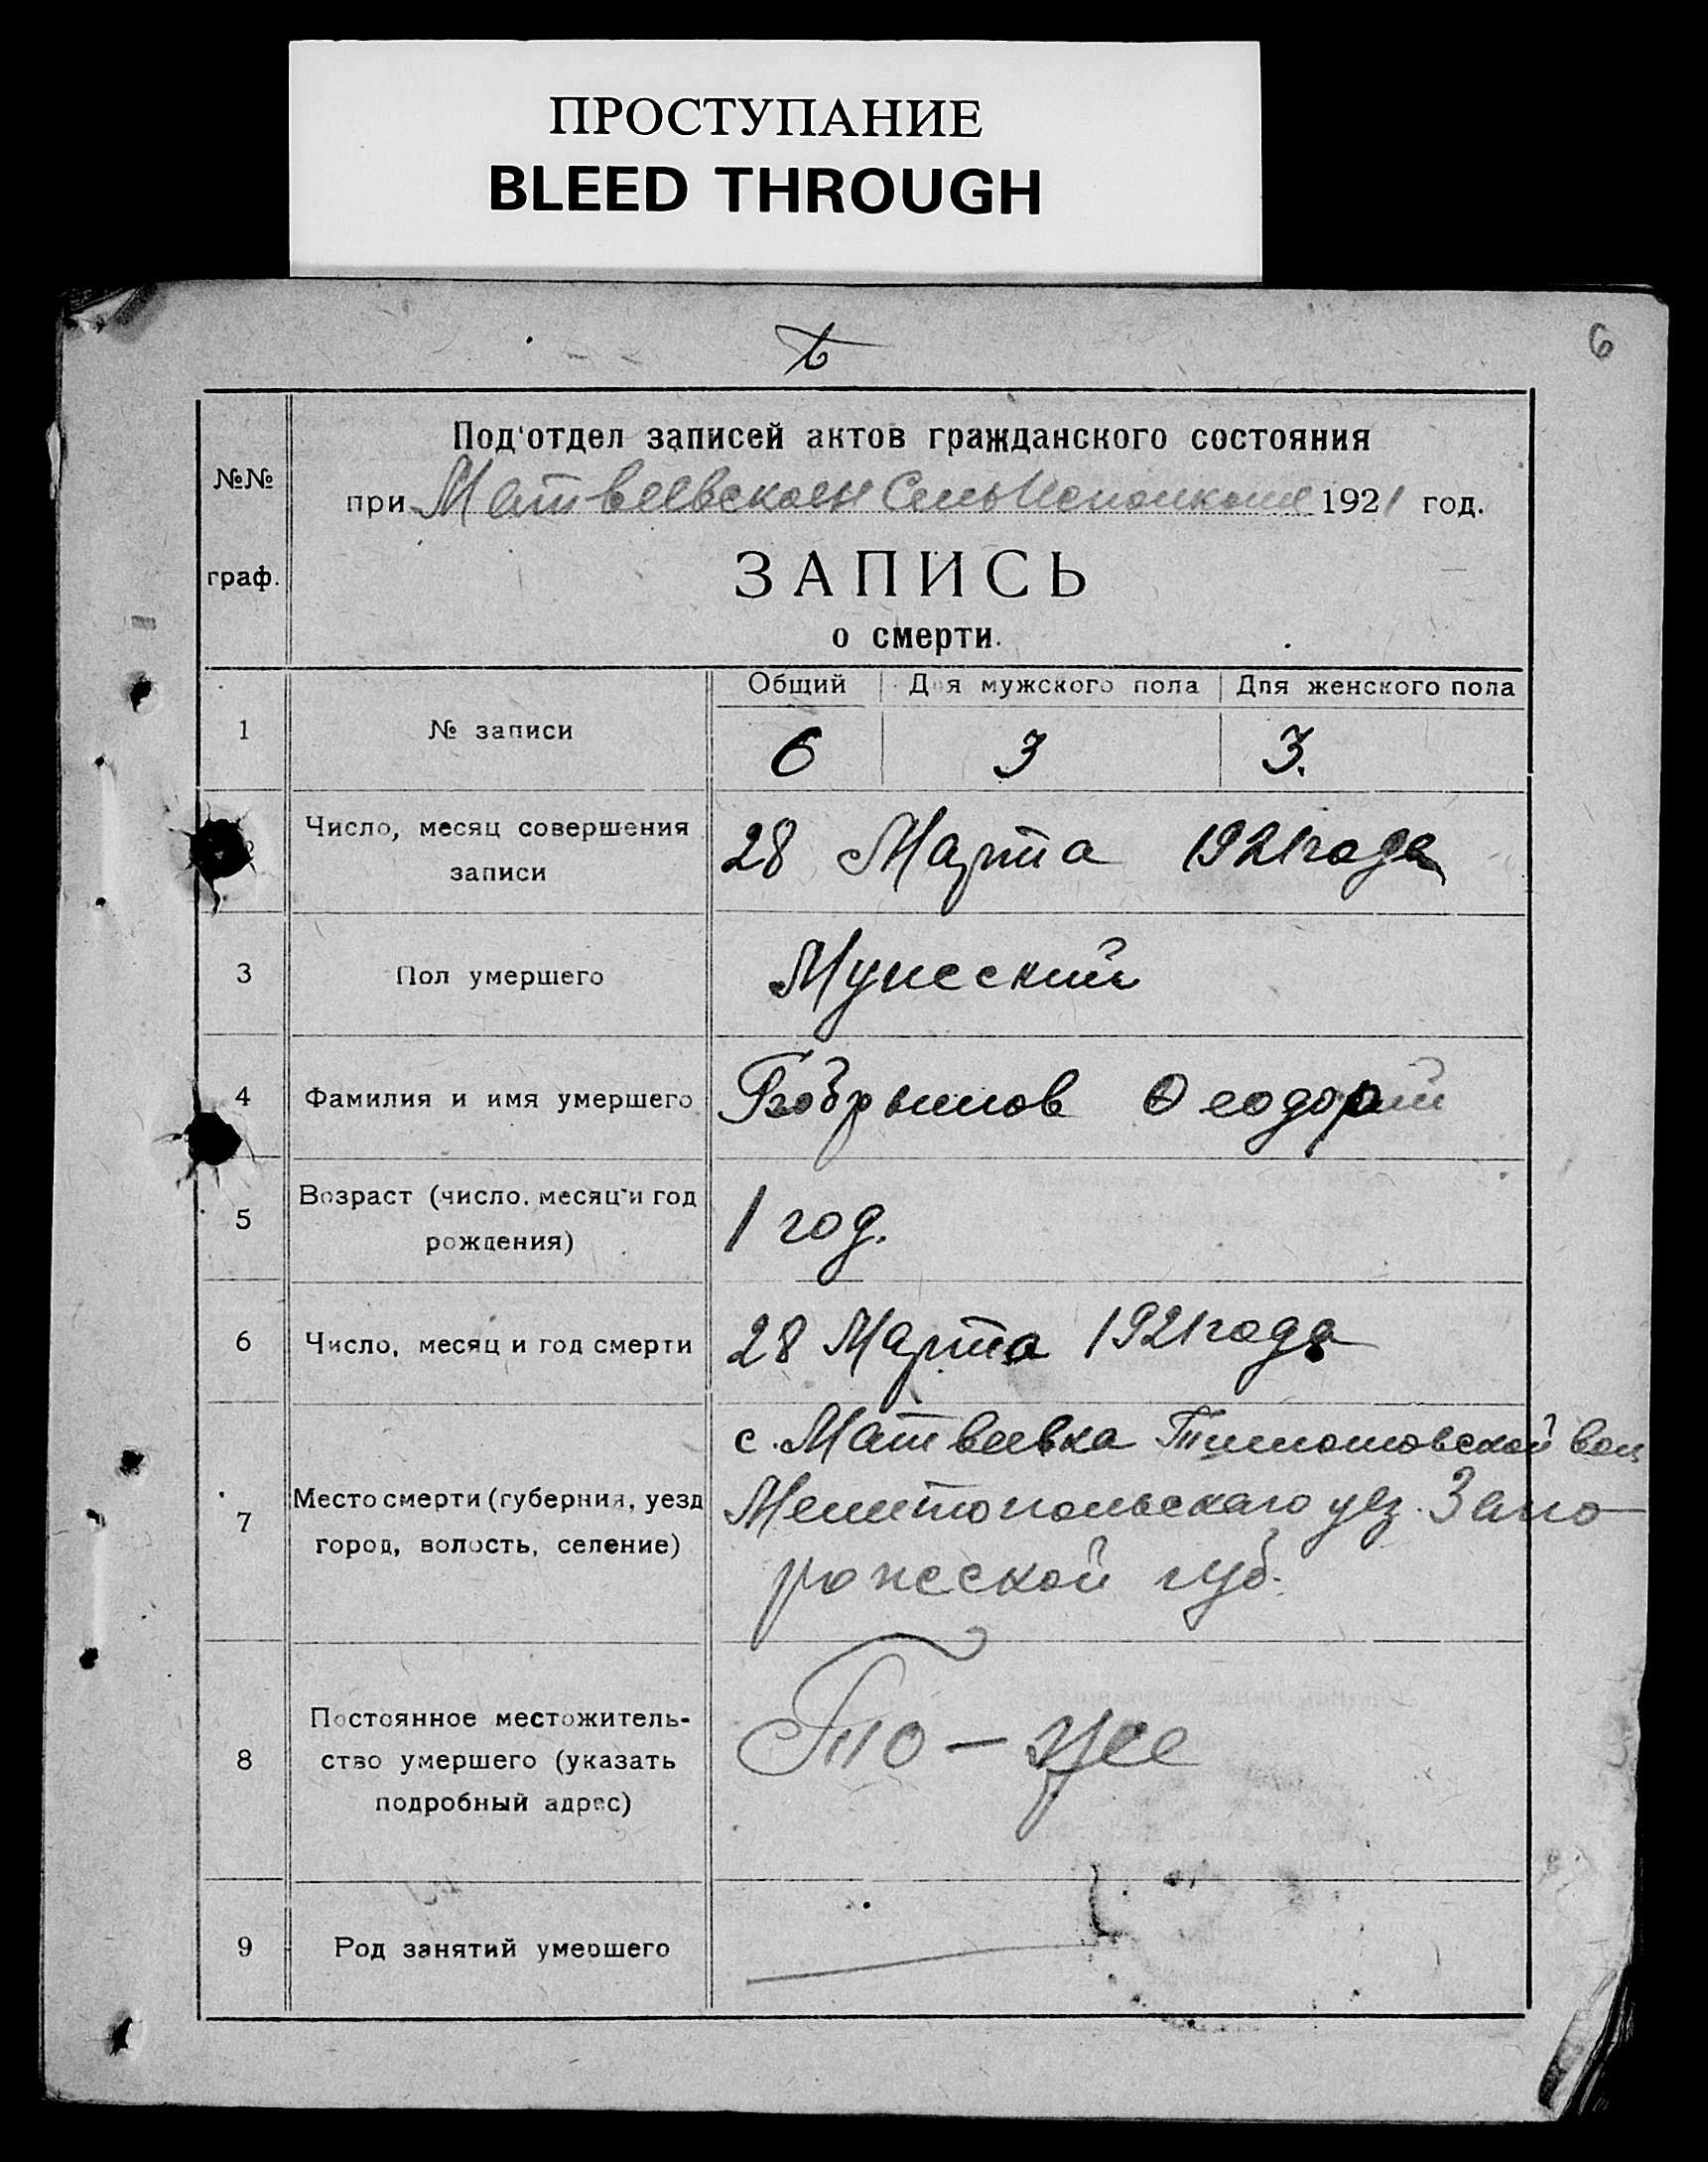 ПРОСТУПАНИЕ
BLEED THROUGH
6
Под'отдел записей актов гражданского состояния
№№
при Матвеевском СельИсполкоме 1921 год.
граф.
ЗАПИСЬ
о смерти.
Общий Для мужского пола Для женского пола
1 № записи 6 3 3.
Число, месяц совершения
записи
28 Марта 1921 года
3 Пол умершего Мужеский
4 Фамилия и имя умершего Бобрышов Ѳеодорий
5 Возраст (число, месяц и год
рождения)
1 год.
6 Число, месяц и год смерти 28 Марта 1921 года
7 Место смерти (губерния, уезд
город, волость, селение)
с. Матвеевка Тимошовской вол
Мелитопольскаго уез. Запо-
рожеской губ.
8 Постоянное местожитель-
ство умершего (указать
подробный адрес)
То-же
9 Род занятий умершего